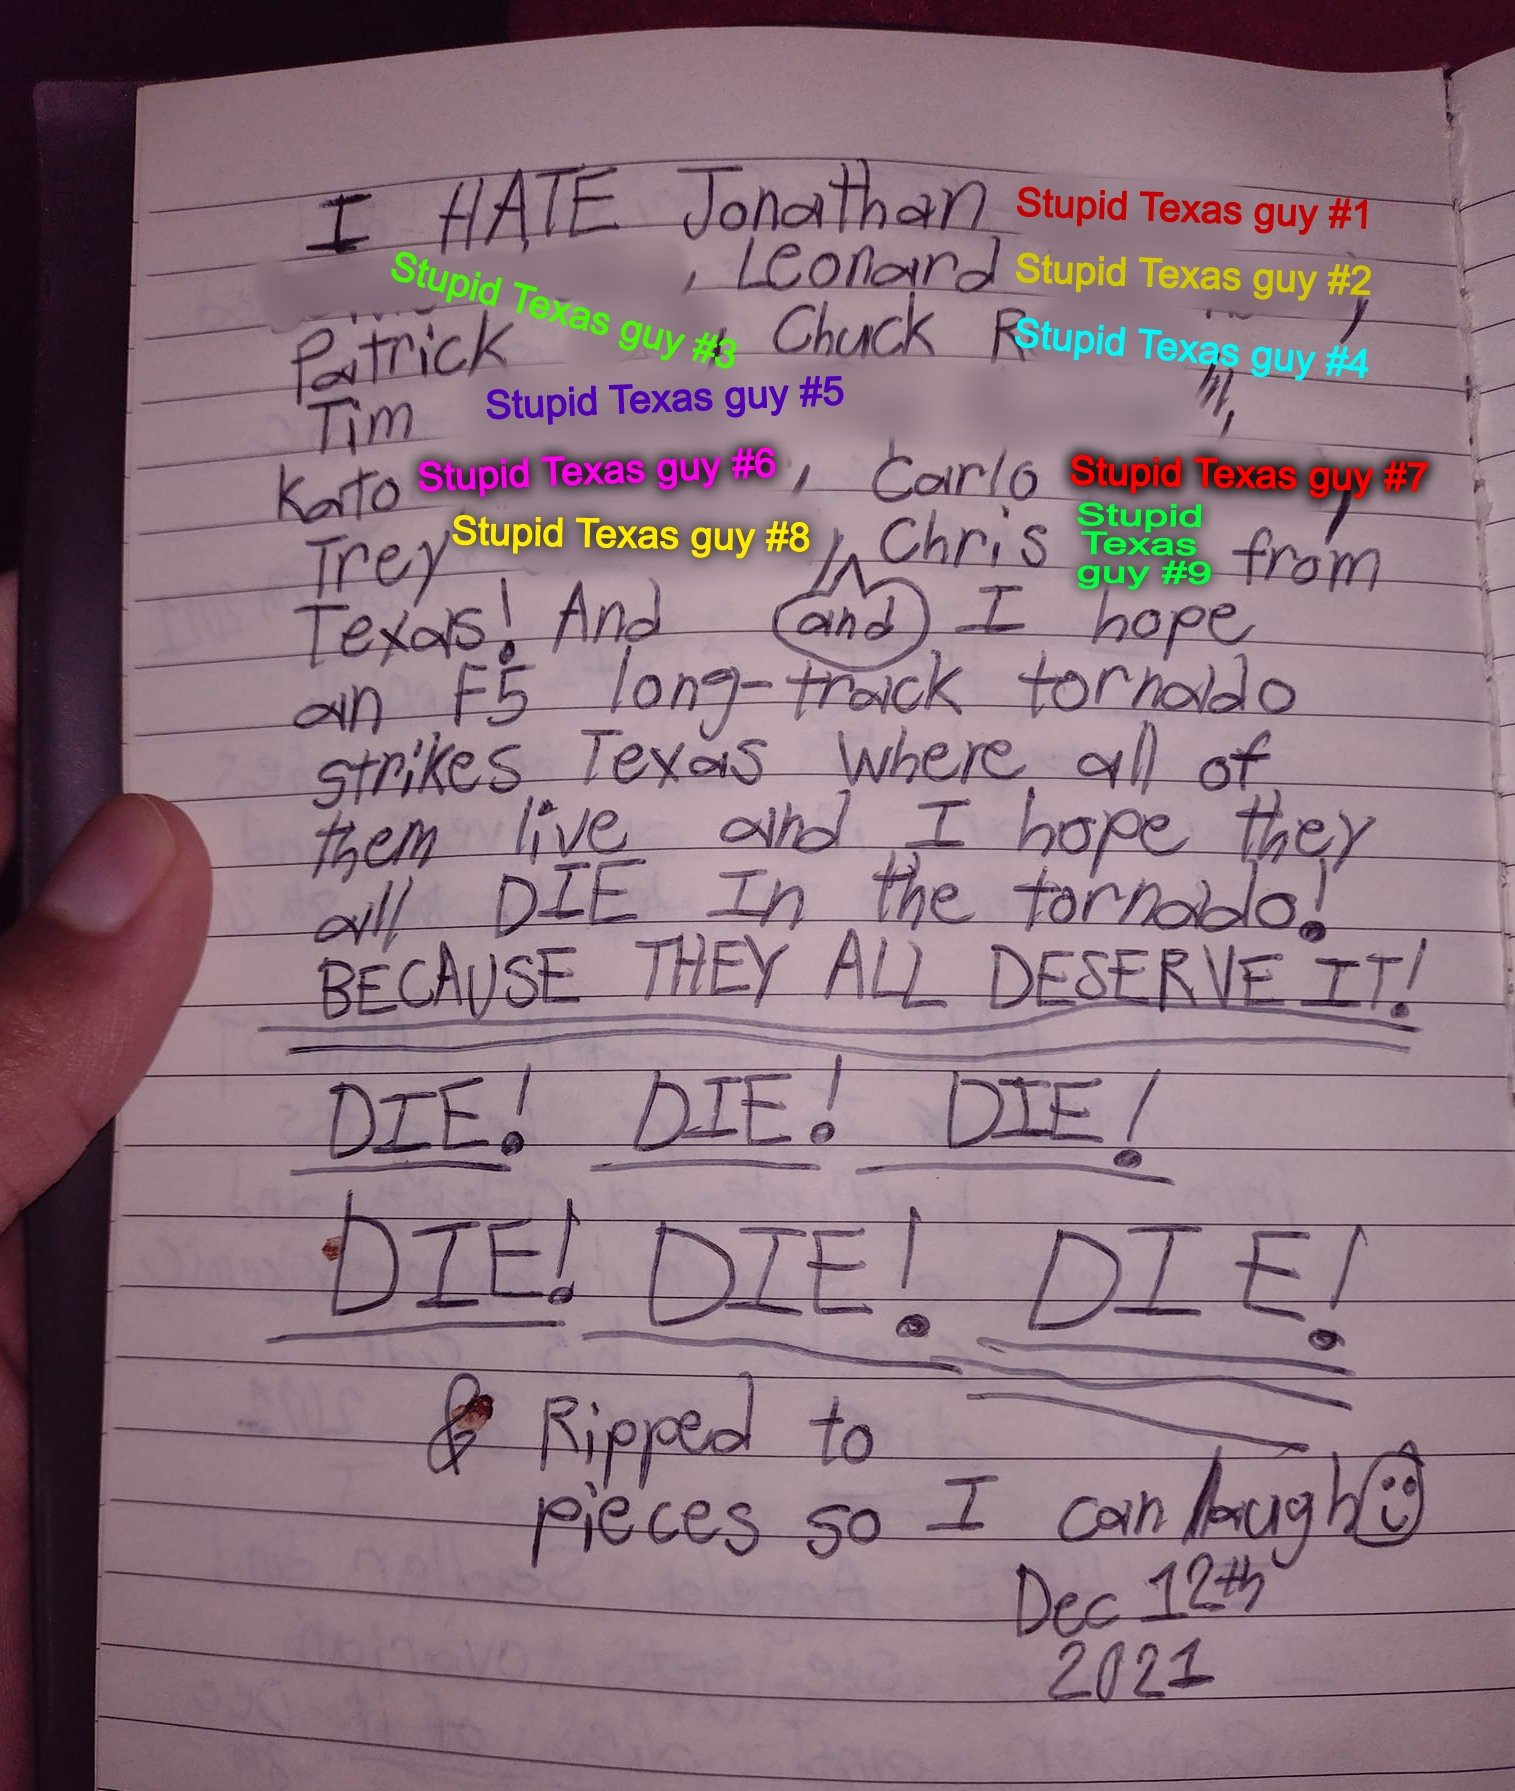 I HATE Jonathan Stupid Texas guy #1
Stupid Texas guy #3, Leonard Stupid Texas guy #2,
Patrick, Chuck R Stupid Texas guy #4
Tim Stupid Texas guy #5,
Kato Stupid Texas guy #6, Carlo Stupid Texas guy #7,
Trey Stupid Texas guy #8, and Chris Stupid Texas guy #9 from
Texas! And I hope
an F5 long-track tornado
strikes Texas where all of
them live and I hope they
all DIE In the tornado!
BECAUSE THEY ALL DESERVE IT!
DIE! DIE! DIE!
DIE! DIE! DIE!
& Ripped to
pieces so I can laugh
Dec 12th
2021